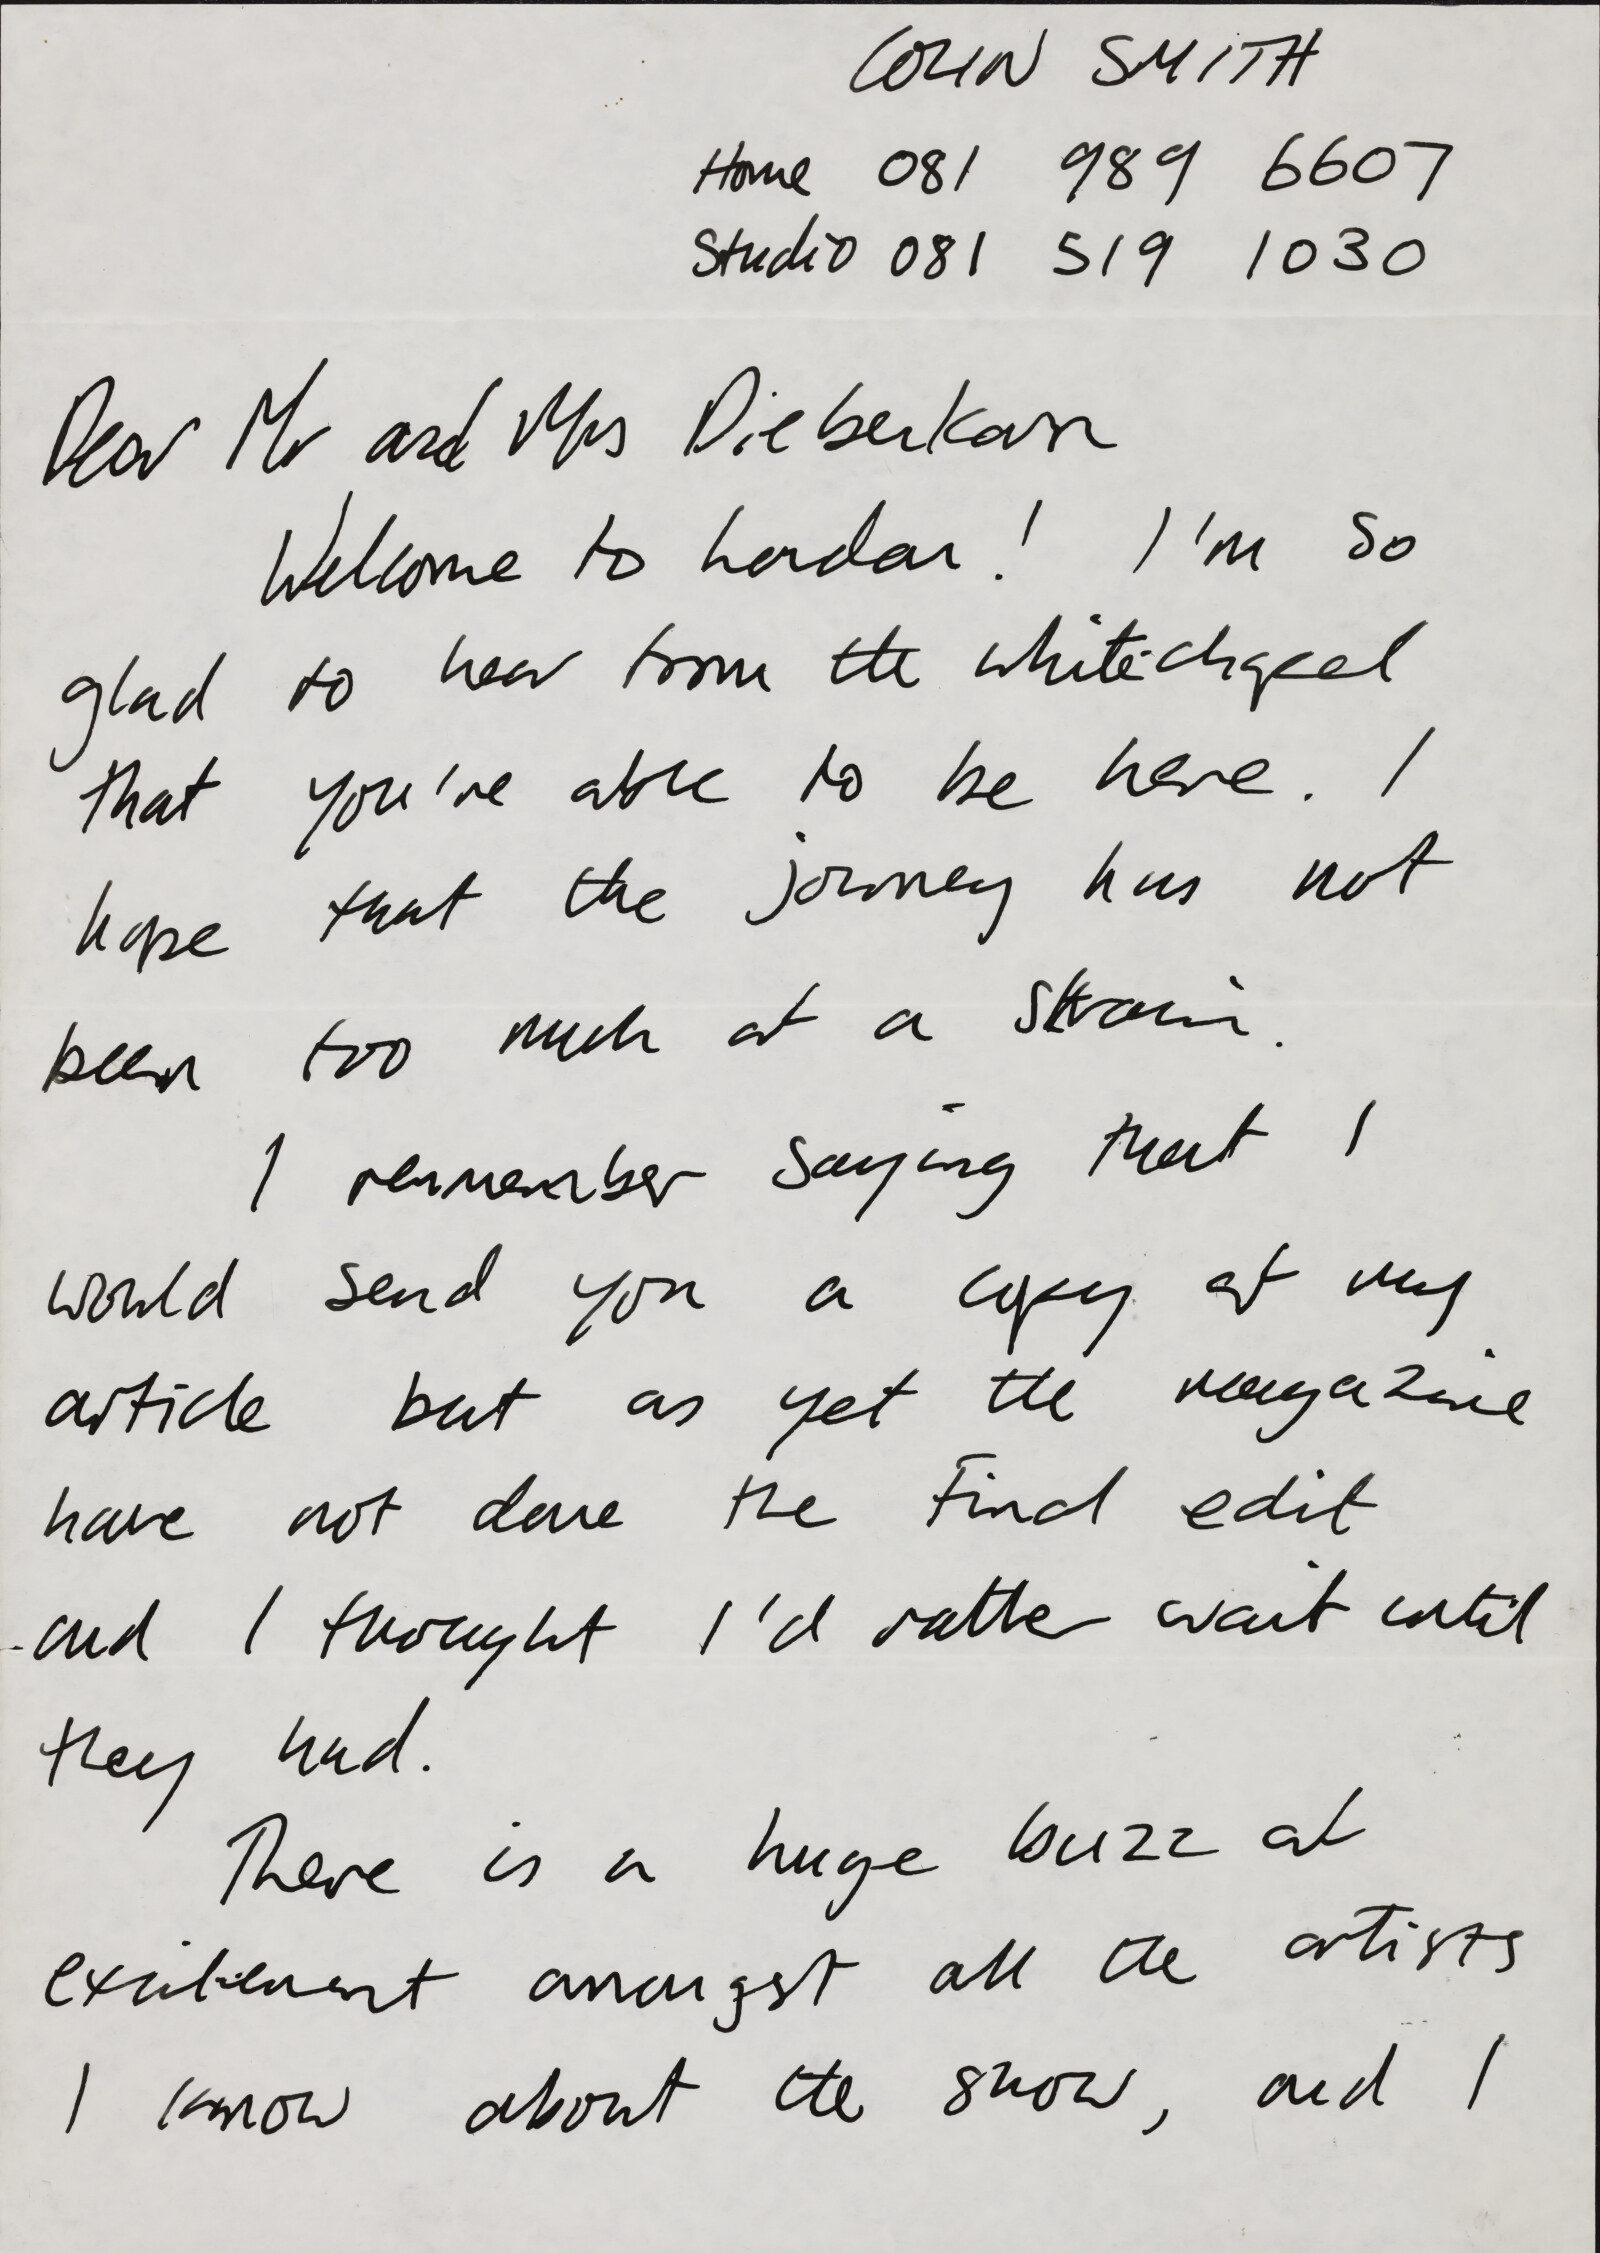 COLIN SMITH
Home 081 989 6607
Studio 081 519 1030
Dear Mr and Mrs Dieberkorn
Welcome to London! I'm so
glad to hear from the Whitechapel
that you're able to be here. I
hope that the journey has not
been too much of a strain.
I remember saying that I
would send you a copy of my
article but as yet the magazine
have not done the Final edit
and I thought I'd rather wait until
they had.
There is a huge buzz of
excitement amongst all the artists
I know about the show, and I